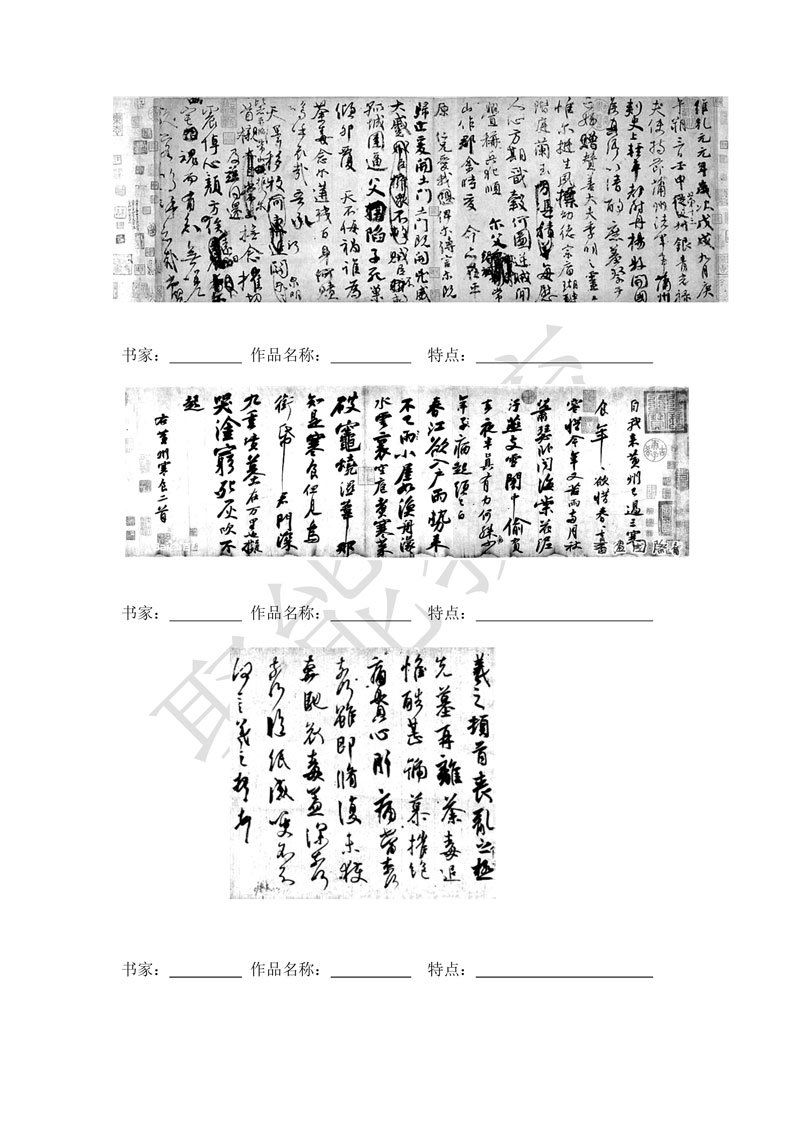 維乾元元年歲次戊戌九月庚
午朔三日壬申
夫使持節蒲州諸軍事蒲州
刺史上輕車都尉丹楊縣開國
侯真卿以清酌庶羞祭于
亡姪贈贊善大夫季明之靈
惟爾挺生夙標幼德宗廟瑚璉
階庭蘭玉每慰
人心方期戩穀何圖逆賊閒
釁稱兵犯順爾父
山作郡余時受命亦在平
原仁兄愛我俾爾傳言爾既
歸止爰開土門土門既開凶威
大蹙賊臣不
孤城圍逼父陷子死巢
傾卵覆天不悔禍誰為
荼毒念爾遘殘百身何贖
嗚呼哀哉吾承
天澤移牧河關
首櫬
震悼心顏方俟
魂而有知無嗟
久客嗚呼哀哉尚饗
书家： 作品名称： 特点：
自我來黃州已過三寒
食年年欲惜春春去不
容惜今年又苦雨兩月秋
蕭瑟臥聞海棠花泥
汙燕支雪闇中偷負
去夜半真有力何殊少
年子病起頭已白
春江欲入戶雨勢來
不已雨小屋如漁舟濛濛
水雲裏空庖煮寒菜
破竈燒濕葦那
知是寒食但見烏
銜帋君門深
九重墳墓在万里也擬
哭塗窮死灰吹不
起
右黃州寒食二首
书家： 作品名称： 特点：
羲之頓首喪亂之極
先墓再離荼毒追
惟酷甚號慕摧絕
痛貫心肝痛當奈何
奈何雖即脩復未獲
奔馳哀毒益深奈何
奈何臨紙感哽不知
何言羲之頓首
书家： 作品名称： 特点：